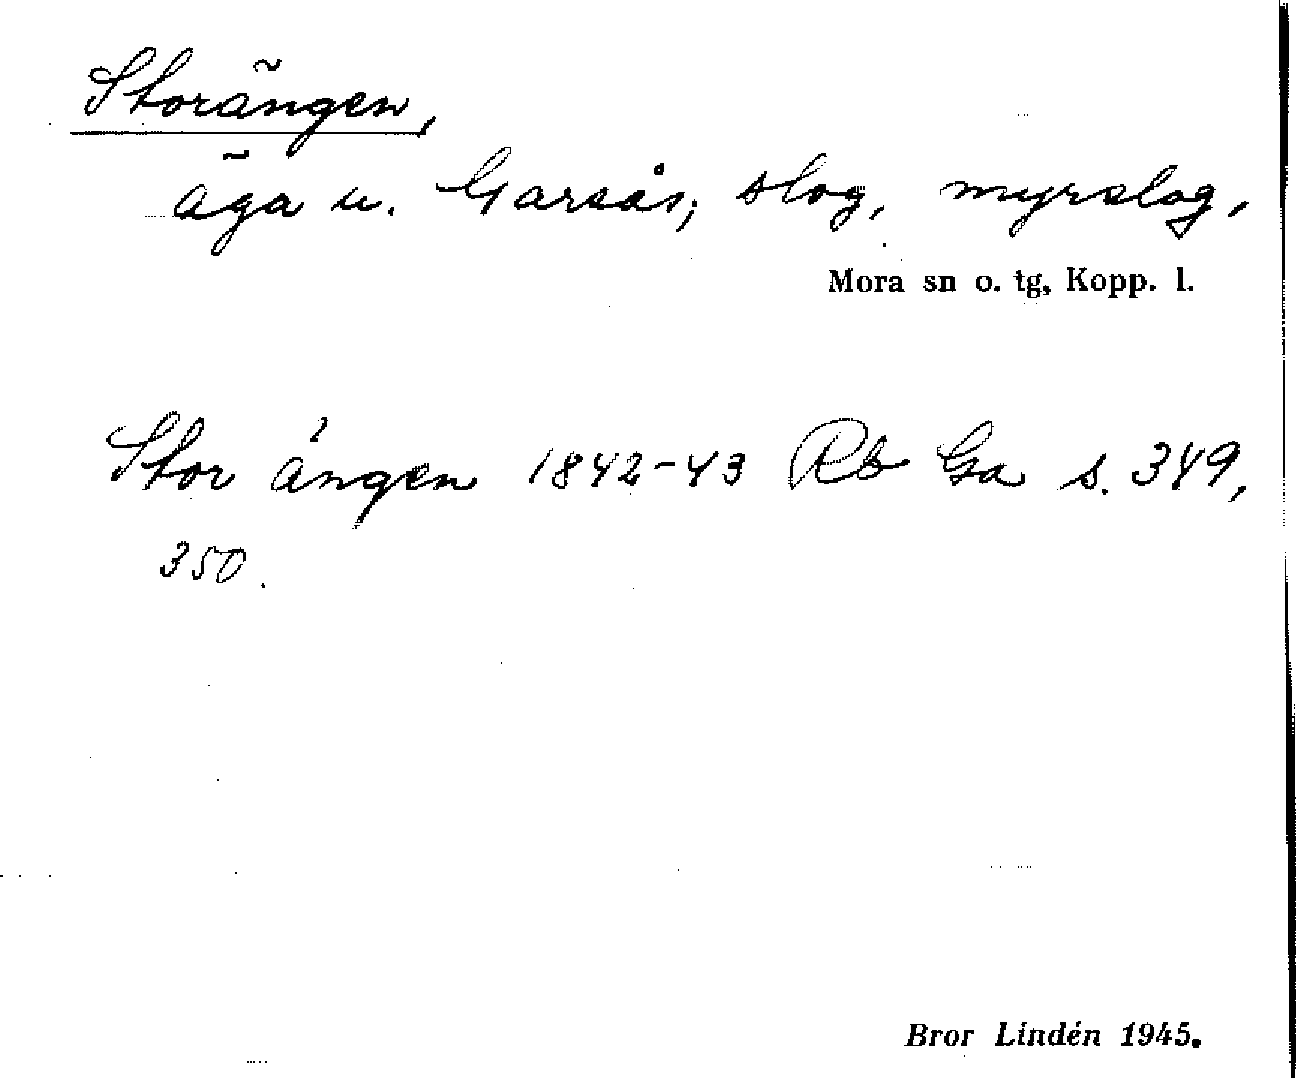 Storängen,
äga u. Garsås; slog, myrslog,
Mora sn o. tg, Kopp. l.
Stor ängen 1842-43 Rb Ga s. 349,
350.
Bror Lindén 1945.